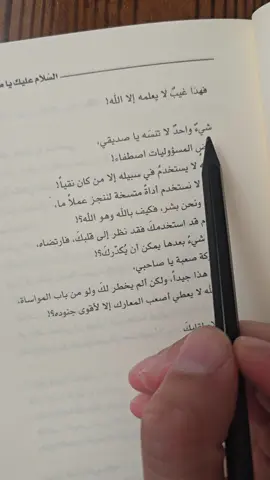 السّلام عليك يا
فهذا غيبٌ لا يعلمه إلا الله!
شيءٌ واحدٌ لا تنسَه يا صديقي،
المسؤوليات اصطفاء!
لا يستخدمُ في سبيله إلا من كان نقياً!
لا نستخدم أداةً متسخة لننجزَ عملاً ما،
ونحن بشر، فكيف بالله وهو الله؟!
قد استخدمكَ فقد نظر إلى قلبكَ، فارتضاه،
شيءُ بعدها يمكن أن يُكدّركَ؟!
صعبة يا صاحبي،
هذا جيداً، ولكن ألم يخطر لكَ ولو من باب المواساة،
لا يعطي أصعب المعارك إلا لأقوى جنوده؟!